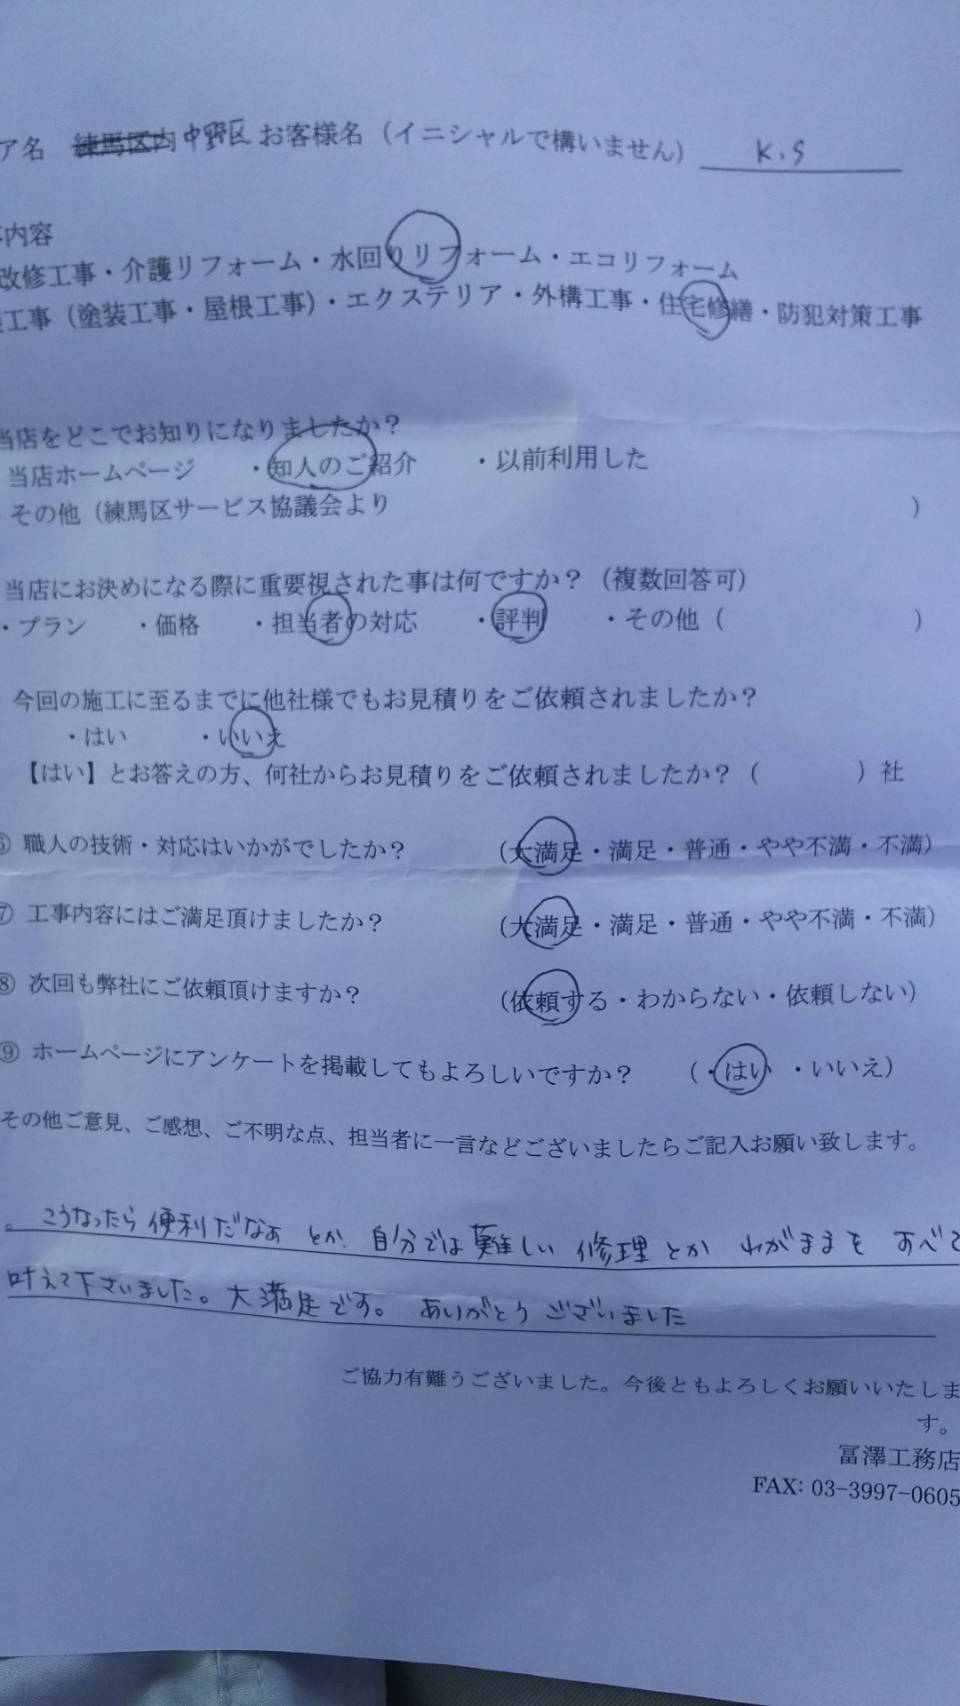 ア名 練馬区内 中野区 お客様名（イニシャルで構いません） K.S
内容
改修工事・介護リフォーム・水回りリフォーム・エコリフォーム
工事（塗装工事・屋根工事）・エクステリア・外構工事・住宅修繕・防犯対策工事
当店をどこでお知りになりましたか？
当店ホームページ ・知人のご紹介 ・以前利用した
その他（練馬区サービス協議会より ）
当店にお決めになる際に重要視された事は何ですか？（複数回答可）
・プラン ・価格 ・担当者の対応 ・評判 ・その他（ ）
今回の施工に至るまでに他社様でもお見積りをご依頼されましたか？
・はい ・いいえ
【はい】とお答えの方、何社からお見積りをご依頼されましたか？（ ）社
⑥ 職人の技術・対応はいかがでしたか？ （大満足・満足・普通・やや不満・不満）
⑦ 工事内容にはご満足頂けましたか？ （大満足・満足・普通・やや不満・不満）
⑧ 次回も弊社にご依頼頂けますか？ （依頼する・わからない・依頼しない）
⑨ ホームページにアンケートを掲載してもよろしいですか？ （・はい ・いいえ）
その他ご意見、ご感想、ご不明な点、担当者に一言などございましたらご記入お願い致します。
。こうなったら便利だなぁ とか、自分では難しい 修理とか わがままを すべて
叶えて下さいました。大満足です。 ありがとう ございました
ご協力有難うございました。今後ともよろしくお願いいたしま
す。
冨澤工務店
FAX: 03-3997-0605